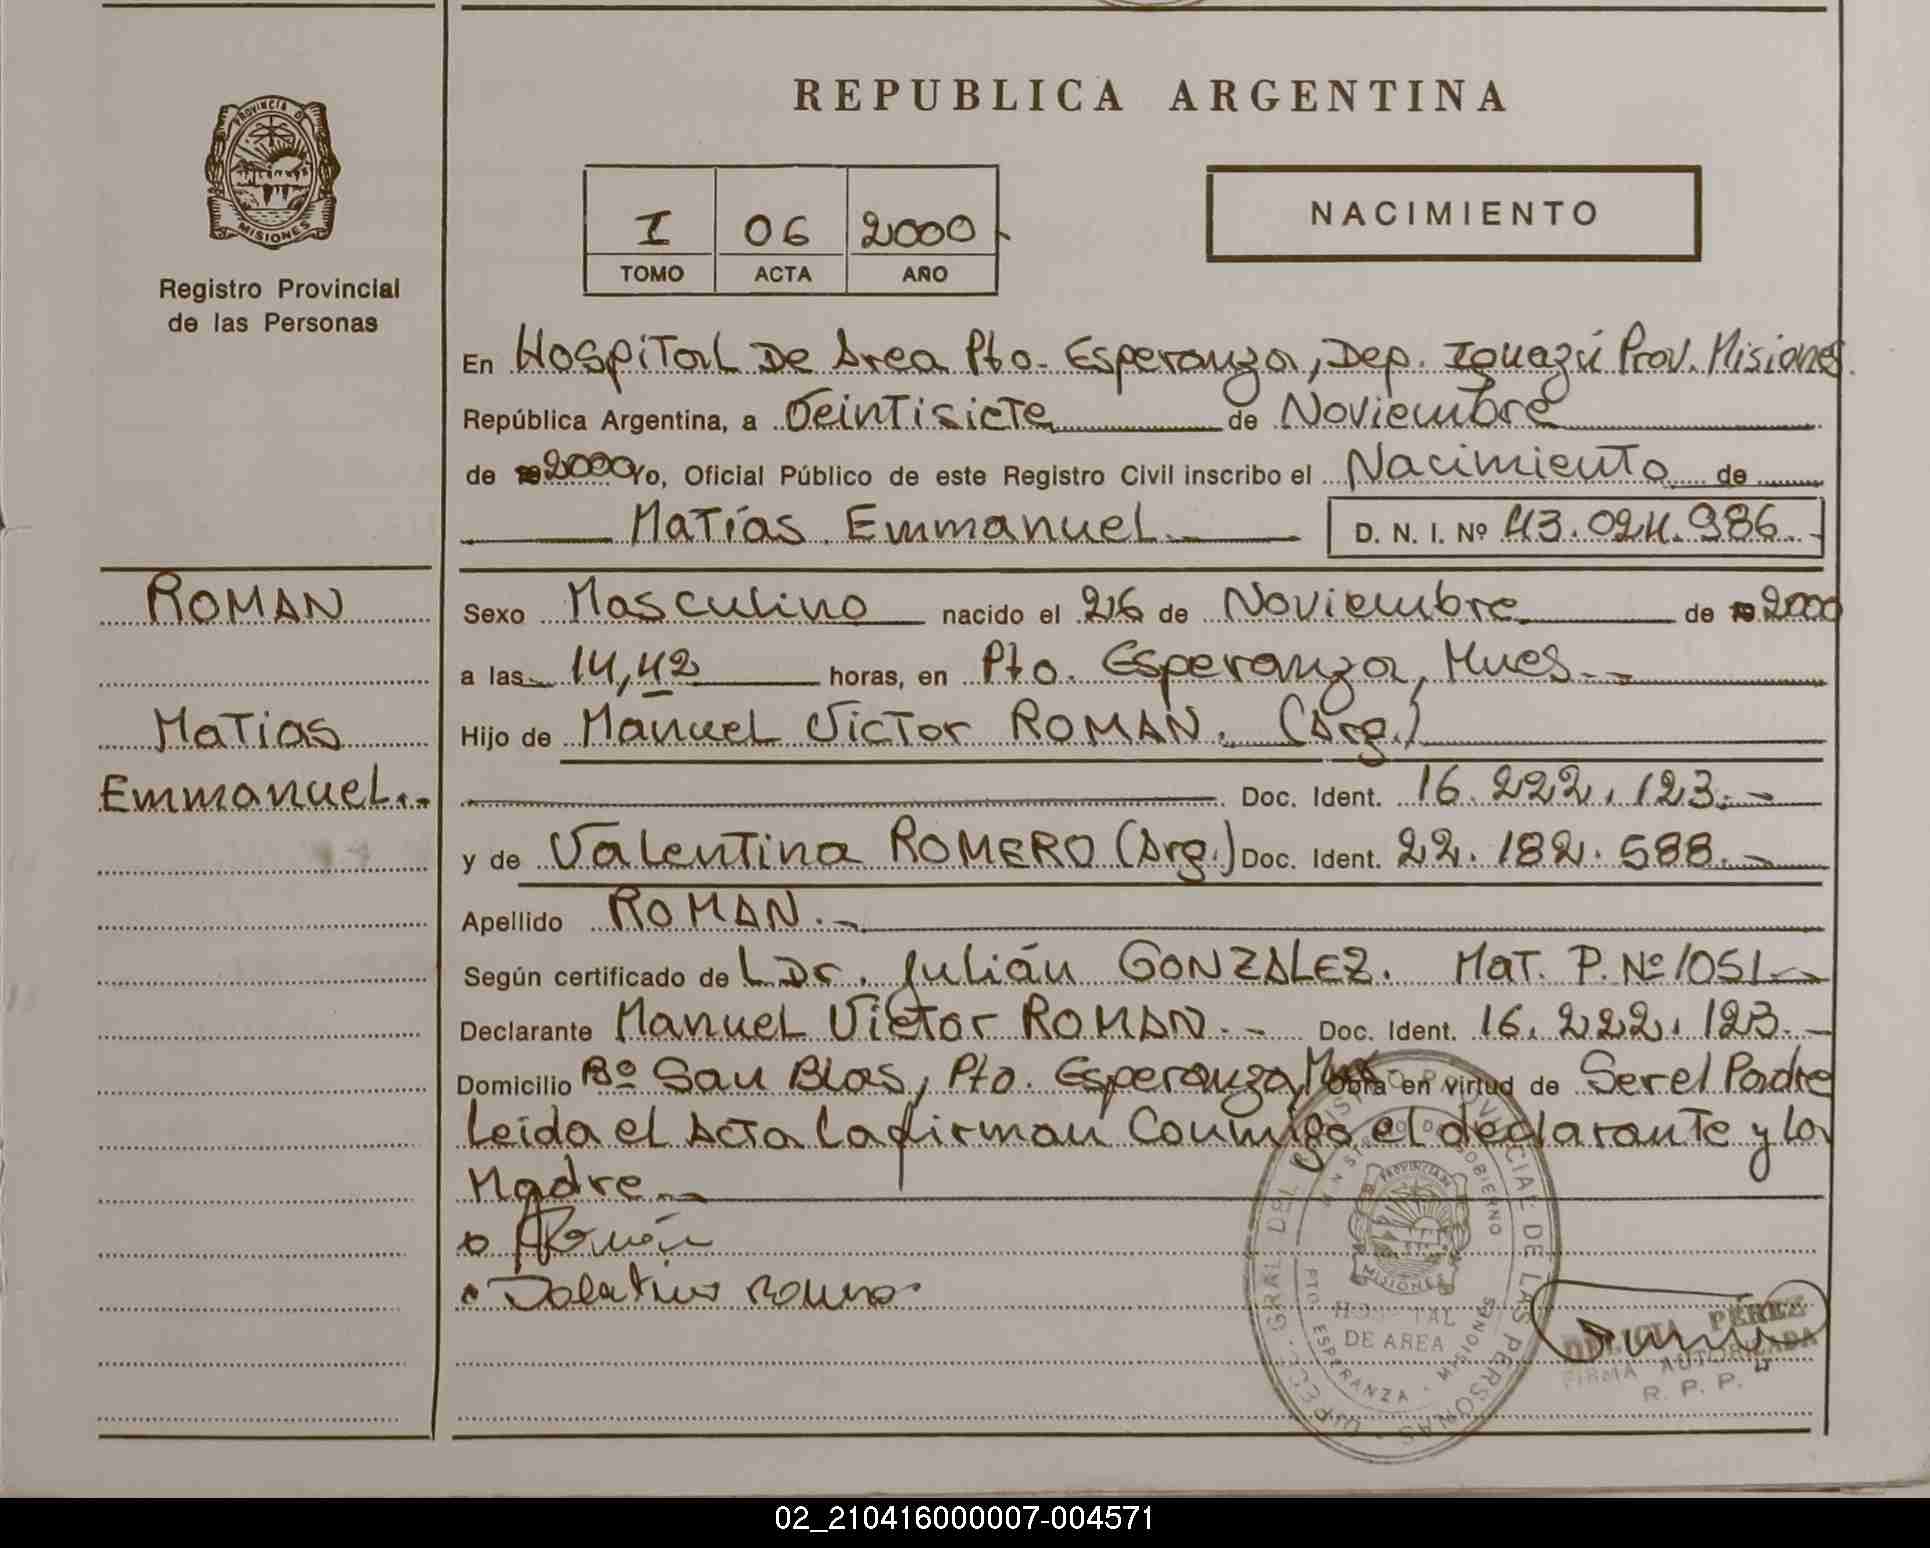 REPUBLICA ARGENTINA
PROVINCIA DE
MISIONES
Registro Provincial
de las Personas
I 06 2000
TOMO ACTA AÑO
NACIMIENTO
En Hospital De Area Pto. Esperanza, Dep. Iguazú Prov. Misiones
República Argentina, a Veintisiete de Noviembre
de 2000 Yo, Oficial Público de este Registro Civil inscribo el Nacimiento de
Matías Emmanuel D. N. I. Nº 43.024.986
ROMAN
Matias
Emmanuel
Sexo Masculino nacido el 26 de Noviembre de 2000
a las 14,42 horas, en Pto. Esperanza, Mnes
Hijo de Manuel Victor ROMAN. (Arg.)
Doc. Ident. 16.222.123
y de Valentina ROMERO (Arg.) Doc. Ident. 22.182.588
Apellido ROMAN
Según certificado de Dr. Julián GONZALEZ. Mat. P. Nº 1051
Declarante Manuel Victor ROMAN Doc. Ident. 16.222.123
Domicilio Bº San Blas, Pto. Esperanza, Mnes Obra en virtud de Ser el Padre
Leida el Acta La firman Conmigo el declarante y la
Madre
Román
REGISTRO PROVINCIAL DE LAS PERSONAS
MINISTERIO DE GOBIERNO
PROVINCIA DE
MISIONES
HOSPITAL
DE AREA
PTO. ESPERANZA - MISIONES
DELICIA PÉREZ
FIRMA AUTORIZADA
R. P. P.
02_210416000007-004571